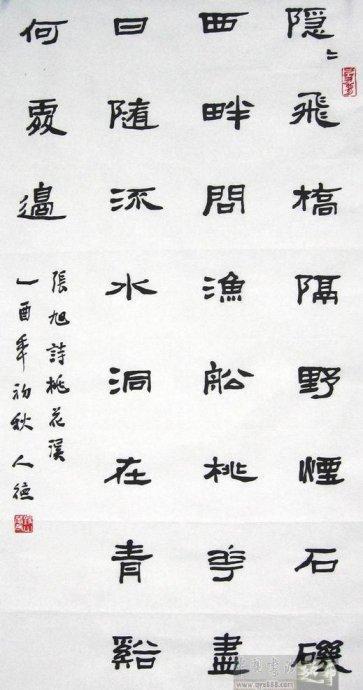 隱〻飛橋隔野煙石磯
西畔問漁船桃華盡
日隨流水洞在青谿
何處邊
張旭詩桃花溪
乙酉年初秋人德